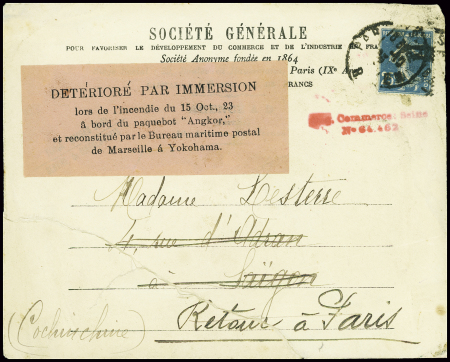 SOCIÉTÉ GÉNÉRALE
POUR FAVORISER LE DÉVELOPPEMENT DU COMMERCE ET DE L'INDUSTRIE EN FRA
Société Anonyme fondée en 1864
Paris (IXe A
FRANCS
DETÉRIORÉ PAR IMMERSION
lors de l'incendie du 15 Oct, 23
à bord du paquebot "Angkor,"
et reconstitué par le Bureau maritime postal
de Marseille à Yokohama.
Commerce: Seine
No 64.462
Madame Lesterre
4, rue d'Adran
à Saïgon
(Cochinchine)
Retour à Paris